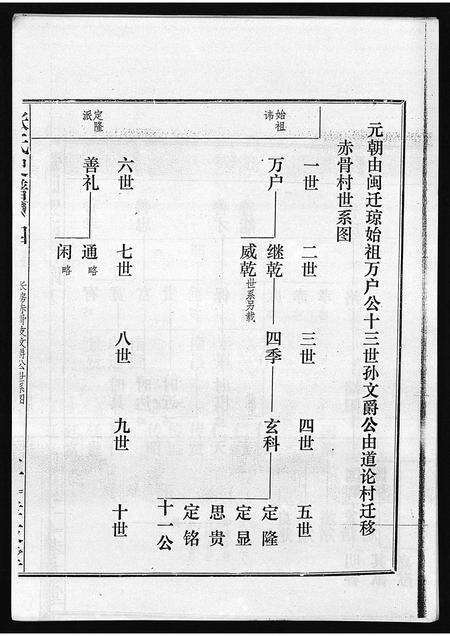 元朝由闽迁琼始祖万户公十三世孙文爵公由道论村迁移
赤骨村世系图
始祖讳
一世 二世 三世 四世 五世
万户 继乾 四季 玄科 定隆
威乾世系另载
定显
思贵
定铭
十一公
定隆派
六世 七世 八世 九世 十世
善礼 通略
闲略
长房赤骨支文爵公世系图